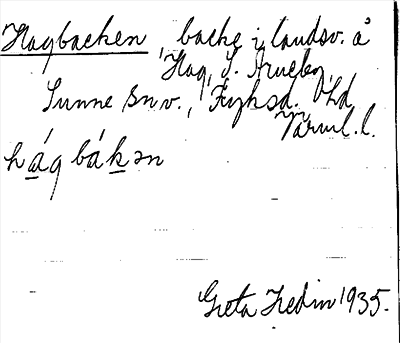 Hagbacken, backe i landsv. å
Hag, S. Årneby,
Sunne snv., Fryksd. hd
Värml. l.
hág bákən
Greta Hedin 1935.